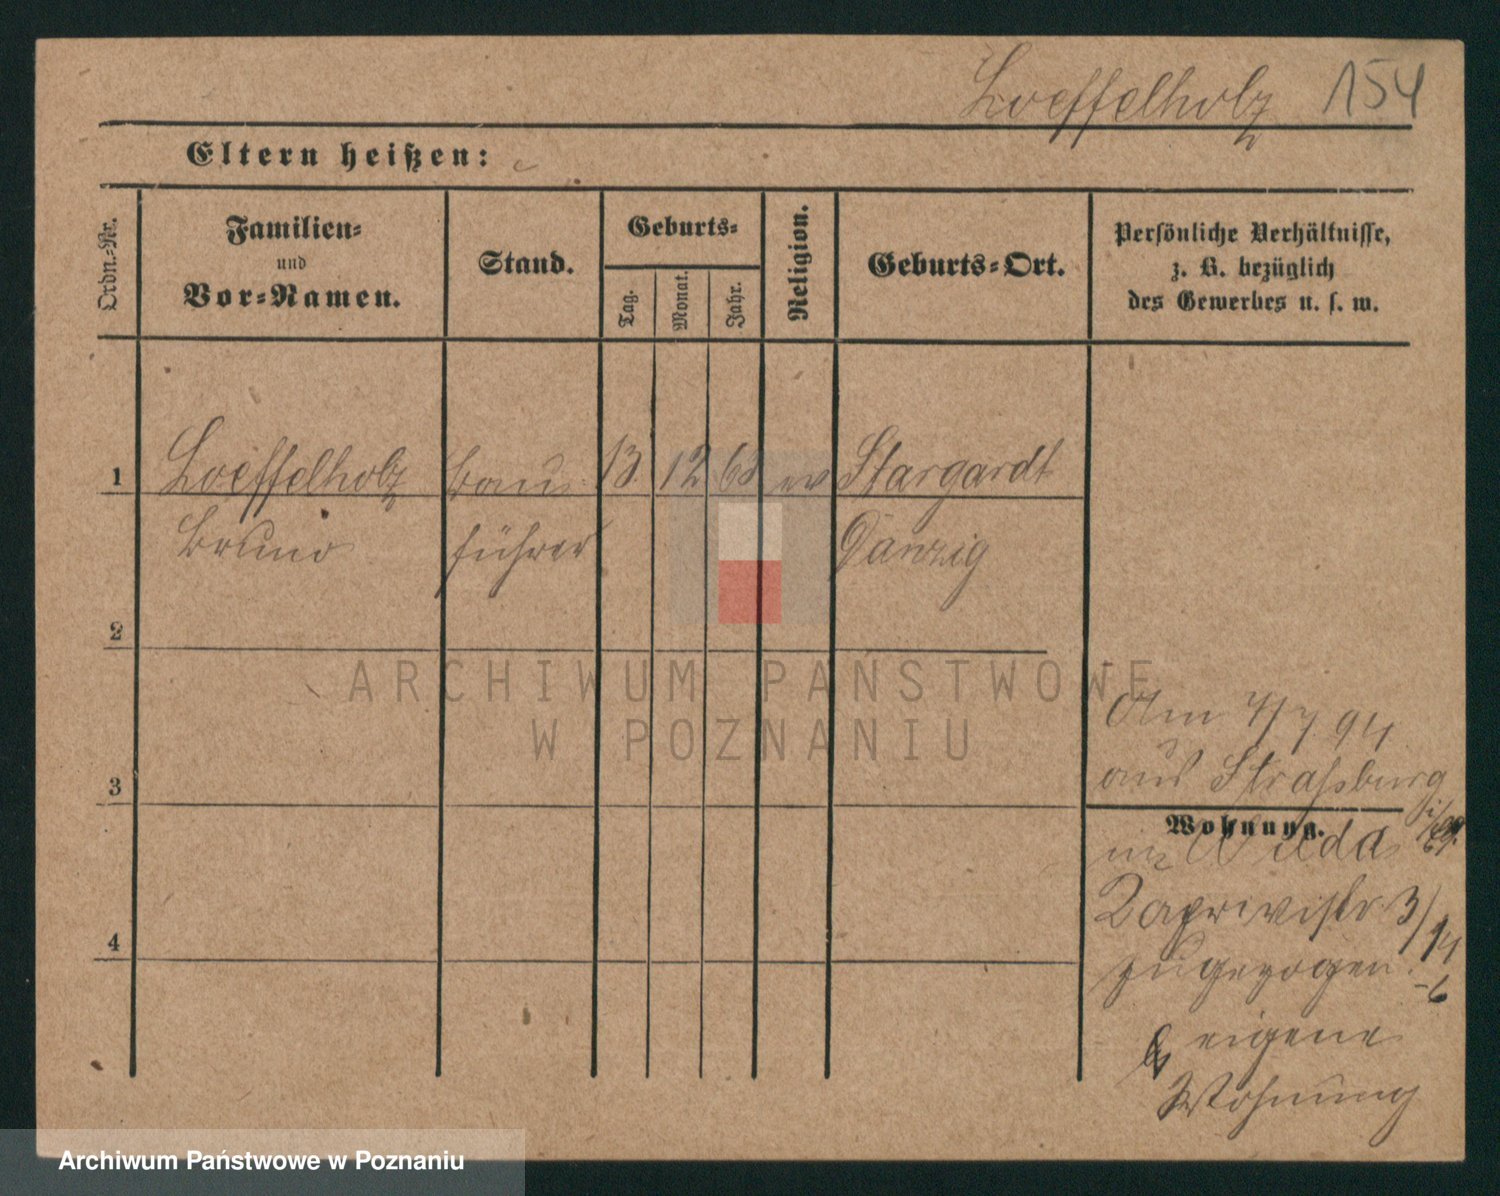 Loeffelholz 154
Eltern heißen:
Ordn.-Nr.
Familien-
und
Vor-Namen.
Stand.
Geburts-
Tag.
Monat.
Jahr.
Religion.
Geburts-Ort.
Persönliche Verhältnisse,
z. B. bezüglich
des Gewerbes u. s. w.
1 Loeffelholz Bau 13 12 63 ev Stargardt
Bruno führer Danzig
2
3
4
Am 4/7 94
aus Strassburg
Wohnung.
in Wilda
3/14
zugezogen
eigene
Wohnung
ARCHIWUM PAŃSTWOWE
W POZNANIU
Archiwum Państwowe w Poznaniu